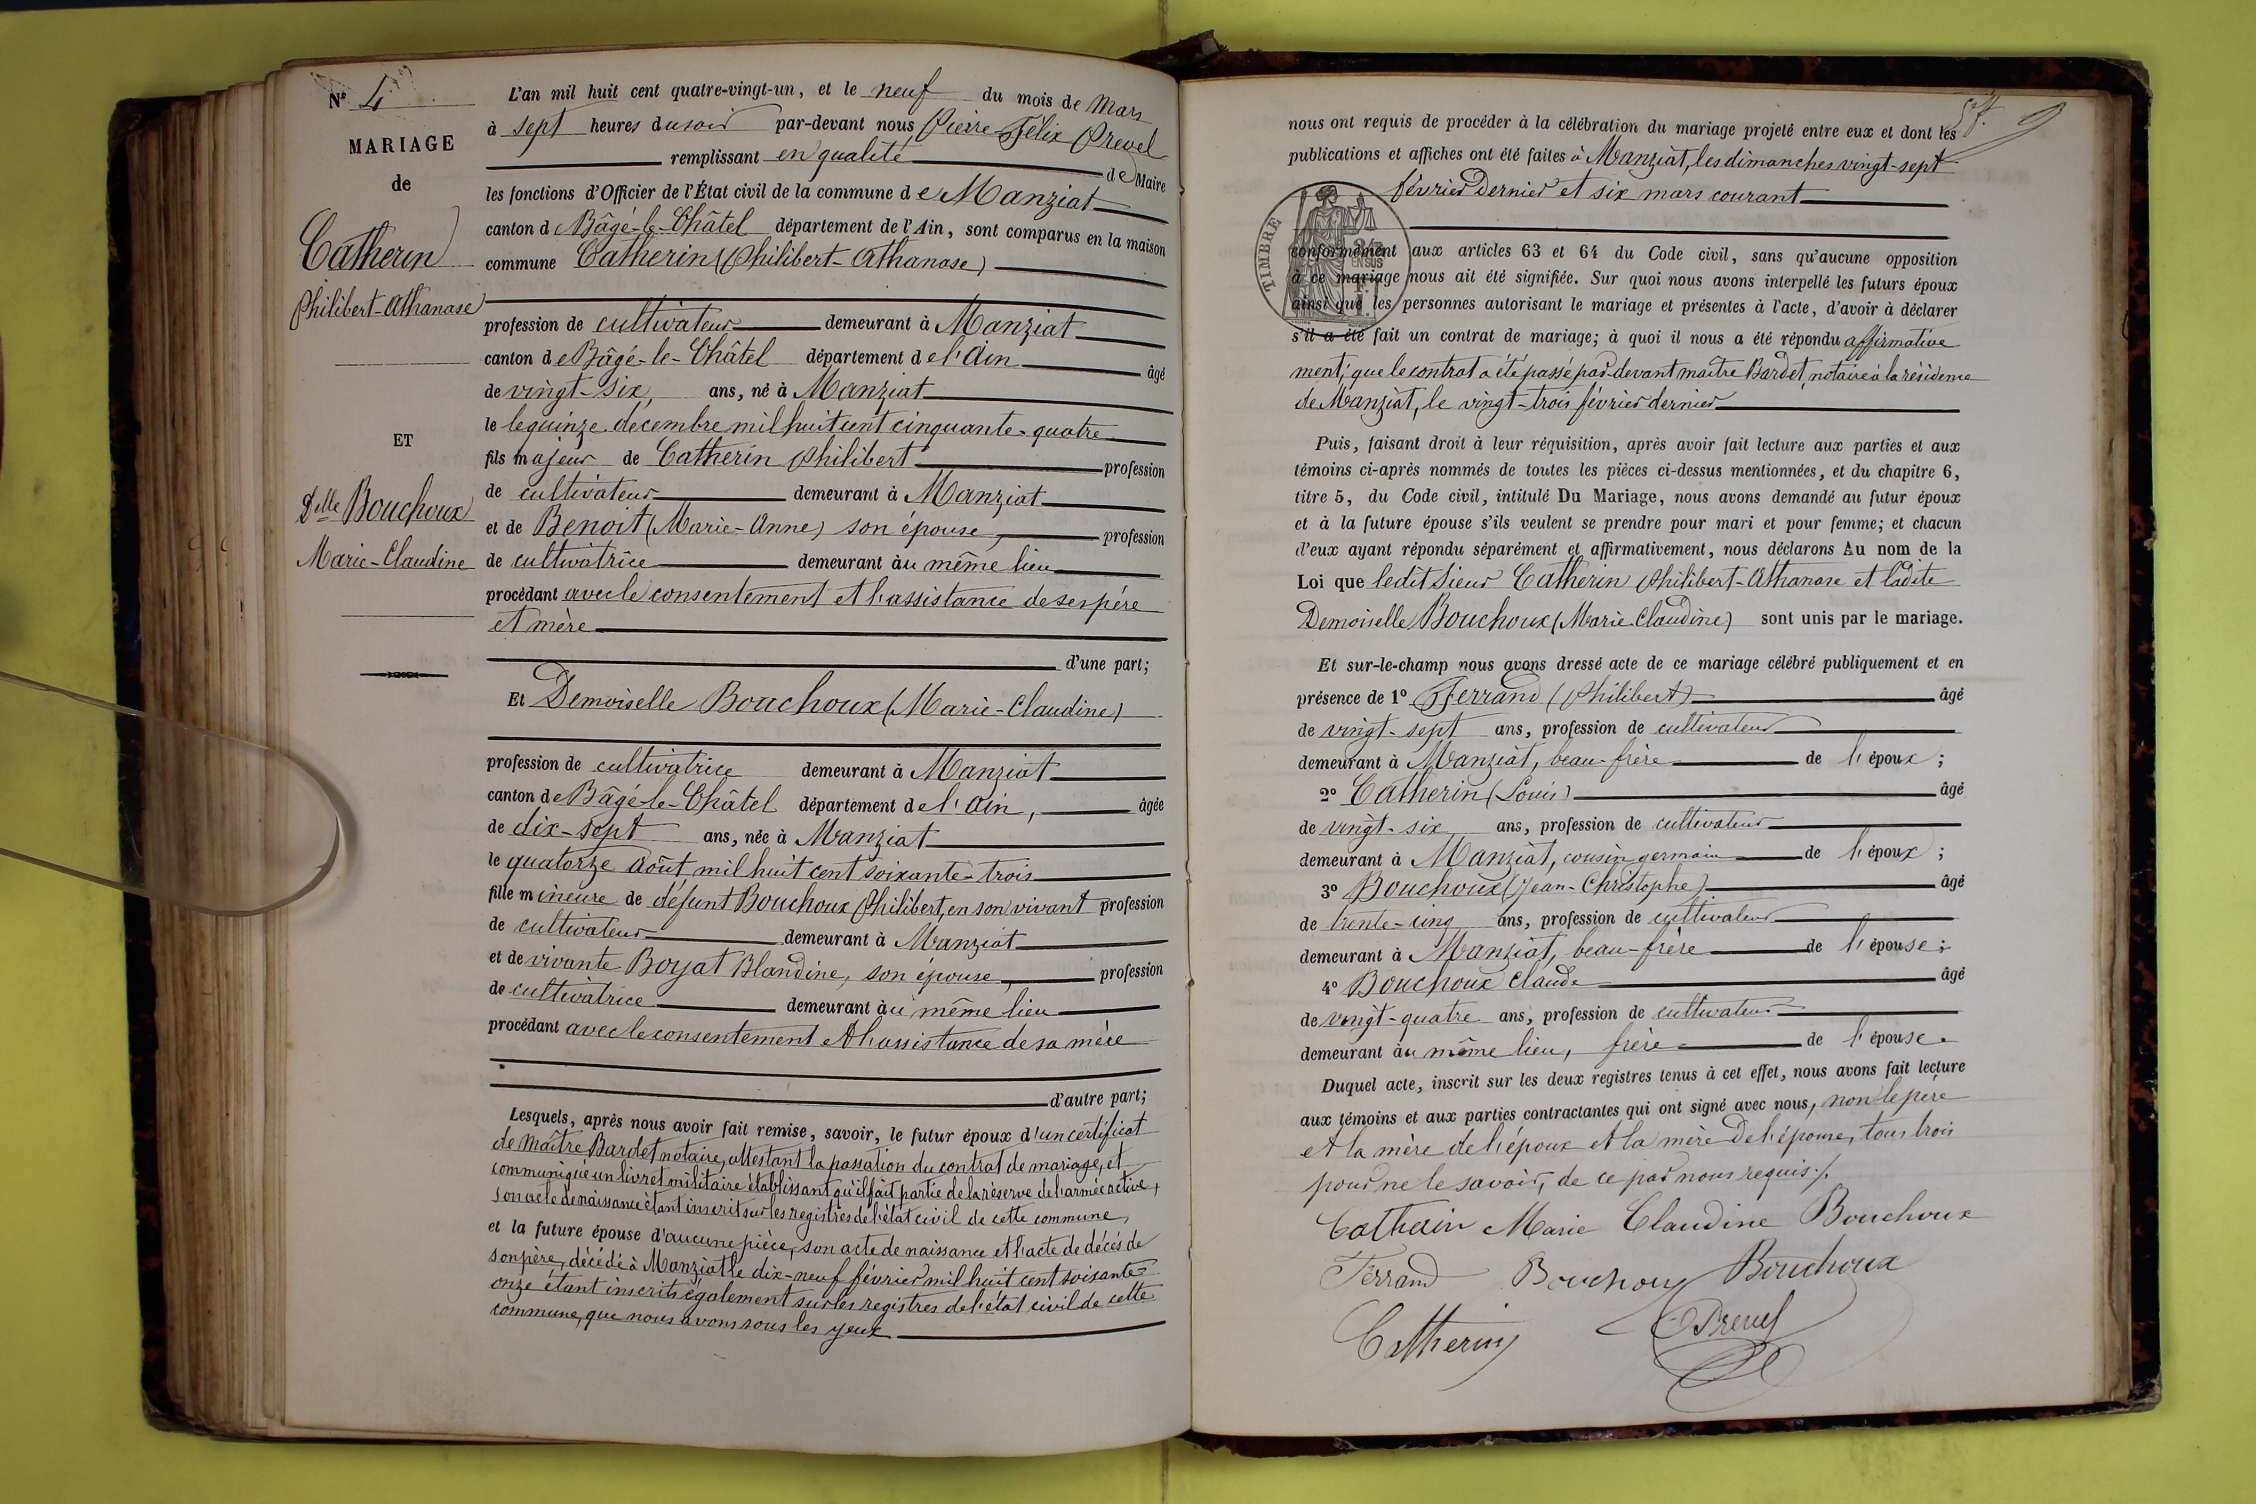 N° 4
MARIAGE
de
Catherin
Philibert-Athanase
ET
Delle Bouchoux
Marie-Claudine
L'an mil huit cent quatre-vingt-un, et le neuf du mois de Mars
à sept heures du soir par-devant nous Pierre Félix Prevel
remplissant en qualité de Maire
les fonctions d'Officier de l'État civil de la commune de Manziat
canton de Bâgé-le-Châtel département de l'Ain, sont comparus en la maison
commune Catherin (Philibert-Athanase)
profession de cultivateur demeurant à Manziat
canton de Bâgé-le-Châtel département de l'Ain âgé
de vingt-six, ans, né à Manziat
le le quinze décembre mil huit cent cinquante-quatre
fils majeur de Catherin Philibert profession
de cultivateur demeurant à Manziat
et de Benoit (Marie-Anne) son épouse, profession
de cultivatrice demeurant au même lieu
procédant avec le consentement et l'assistance de ses père
et mère
d'une part;
Et Demoiselle Bouchoux (Marie-Claudine)
profession de cultivatrice demeurant à Manziat
canton de Bâgé-le-Châtel département de l'Ain, âgée
de dix-sept ans, née à Manziat
le quatorze Août mil huit cent soixante-trois
fille mineure de défunt Bouchoux Philibert, en son vivant profession
de cultivateur demeurant à Manziat
et de vivante Boyat Blandine, son épouse, profession
de cultivatrice demeurant au même lieu
procédant avec le consentement et l'assistance de sa mère
d'autre part;
Lesquels, après nous avoir fait remise, savoir, le futur époux d'un certificat
de Maître Bardet notaire, attestant la passation du contrat de mariage, et
communiqué un livret militaire établissant qu'il fait partie de la réserve de l'armée active,
son acte de naissance étant inscrit sur les registres de l'état civil de cette commune,
et la future épouse d'aucune pièce, son acte de naissance et l'acte de décès de
son père, décédé à Manziat le dix-neuf février mil huit cent soixante
onze étant inscrits également sur les registres de l'état civil de cette
commune, que nous avons sous les yeux
nous ont requis de procéder à la célébration du mariage projeté entre eux et dont les
publications et affiches ont été faites à Manziat, les dimanches vingt-sept
février dernier et six mars courant
TIMBRE
conformément aux articles 63 et 64 du Code civil, sans qu'aucune opposition
à ce mariage nous ait été signifiée. Sur quoi nous avons interpellé les futurs époux
ainsi que les personnes autorisant le mariage et présentes à l'acte, d'avoir à déclarer
s'il a été fait un contrat de mariage; à quoi il nous a été répondu affirmative
ment; que le contrat a été passé par devant maître Bardet, notaire à la résidence
de Manziat, le vingt-trois février dernier
Puis, faisant droit à leur réquisition, après avoir fait lecture aux parties et aux
témoins ci-après nommés de toutes les pièces ci-dessus mentionnées, et du chapitre 6,
titre 5, du Code civil, intitulé Du Mariage, nous avons demandé au futur époux
et à la future épouse s'ils veulent se prendre pour mari et pour femme; et chacun
d'eux ayant répondu séparément et affirmativement, nous déclarons Au nom de la
Loi que ledit Sieur Catherin Philibert-Athanase et ladite
Demoiselle Bouchoux (Marie Claudine) sont unis par le mariage.
Et sur-le-champ nous avons dressé acte de ce mariage célébré publiquement et en
présence de 1° Ferrand (Philibert) âgé
de vingt-sept ans, profession de cultivateur
demeurant à Manziat, beau-frère de l'époux;
2° Catherin (Louis) âgé
de vingt-six ans, profession de cultivateur
demeurant à Manziat, cousin germain de l'époux;
3° Bouchoux (Jean-Christophe) âgé
de trente-cinq ans, profession de cultivateur
demeurant à Manziat, beau-frère de l'épouse;
4° Bouchoux Claude âgé
de vingt-quatre ans, profession de cultivateur
demeurant au même lieu, frère de l'épouse.
Duquel acte, inscrit sur les deux registres tenus à cet effet, nous avons fait lecture
aux témoins et aux parties contractantes qui ont signé avec nous, non le père
et la mère de l'époux et la mère de l'épouse, tous trois
pour ne le savoir, de ce par nous requis./.
Catherin Marie Claudine Bouchoux
Ferrand Bouchoux Bouchoux
Catherin Prevel